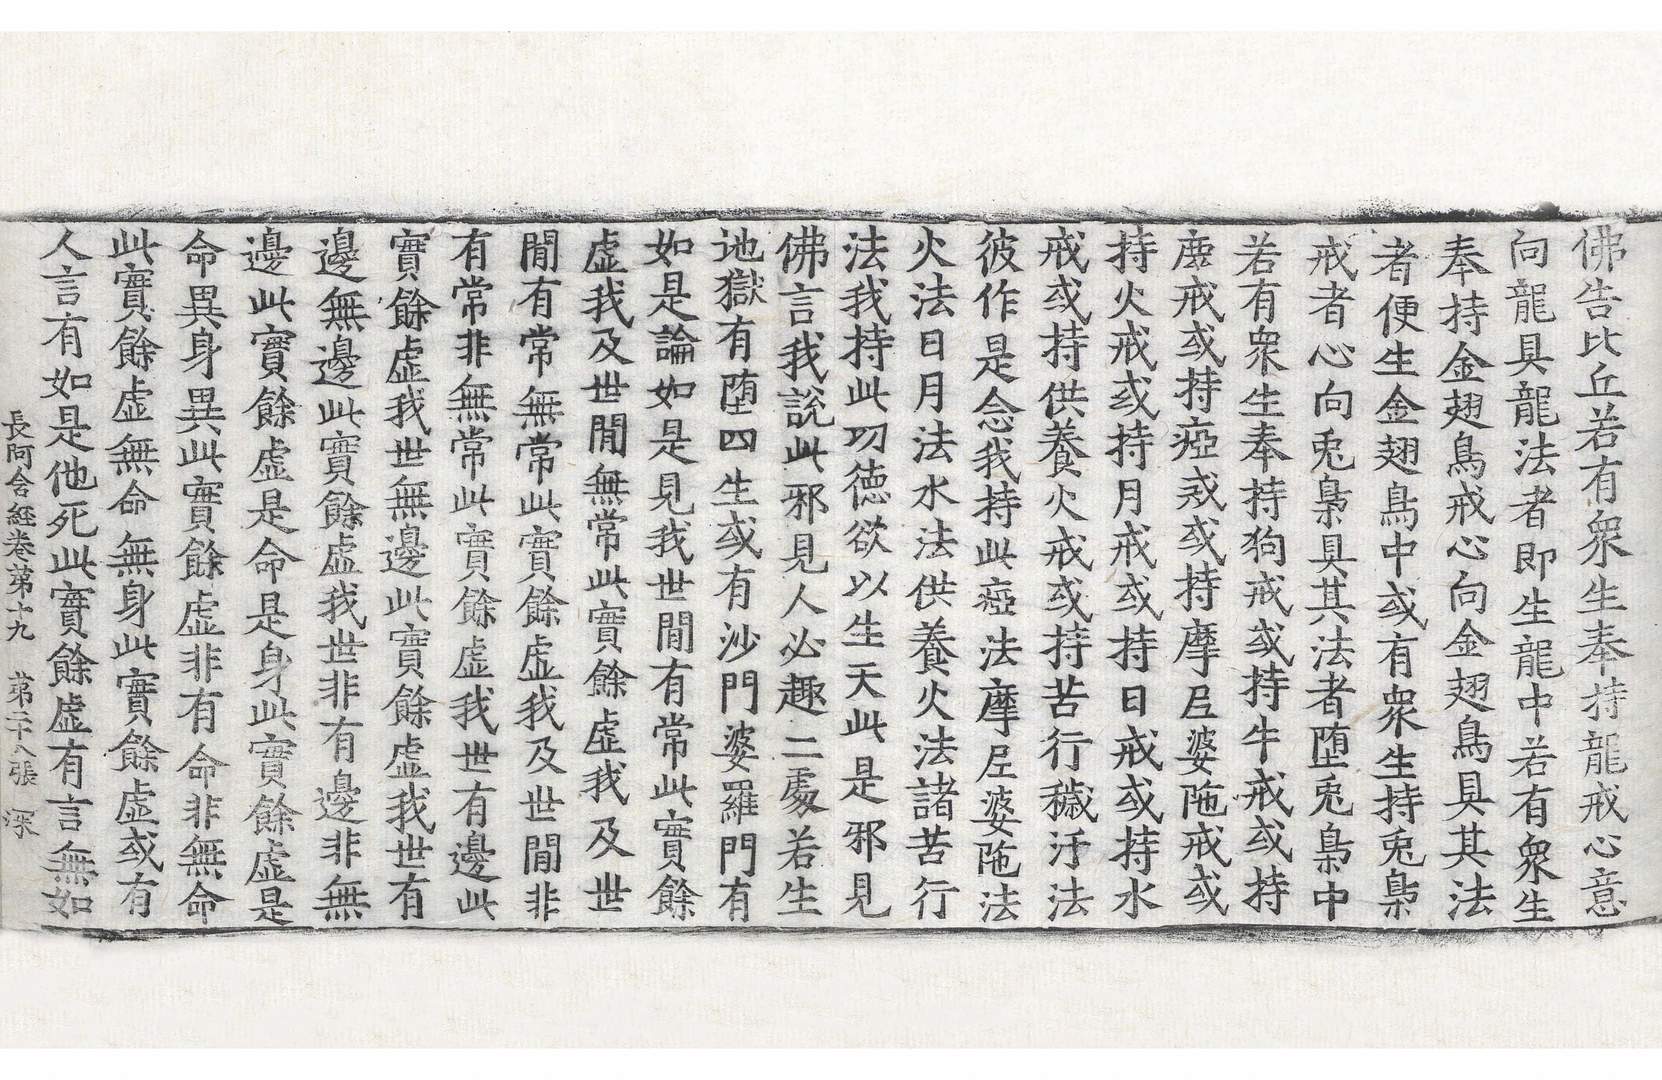 佛告比丘若有衆生奉持龍戒心意
向龍具龍法者即生龍中若有衆生
奉持金翅鳥戒心向金翅鳥具其法
者便生金翅鳥中或有衆生持兎梟
戒者心向兎梟具其法者堕兎梟中
若有衆生奉持狗戒或持牛戒或持
鹿戒或持瘂戒或持摩尼婆陁戒或
持火戒或持月戒或持日戒或持水
戒或持供養火戒或持苦行穢汙法
彼作是念我持此瘂法摩尼婆陁法
火法日月法水法供養火法諸苦行
法我持此功德欲以生天此是邪見
佛言我說此邪見人必趣二處若生
地獄有堕四生或有沙門婆羅門有
如是論如是見我世間有常此實餘
虛我及世間無常此實餘虛我及世
間有常無常此實餘虛我及世間非
有常非無常此實餘虛我世有邊此
實餘虛我世無邊此實餘虛我世有
邊無邊此實餘虛我世非有邊非無
邊此實餘虛是命是身此實餘虛是
命異身異此實餘虛非有命非無命
此實餘虛無命無身此實餘虛或有
人言有如是他死此實餘虛有言無如
長阿含經卷第十九 第二十八張 深